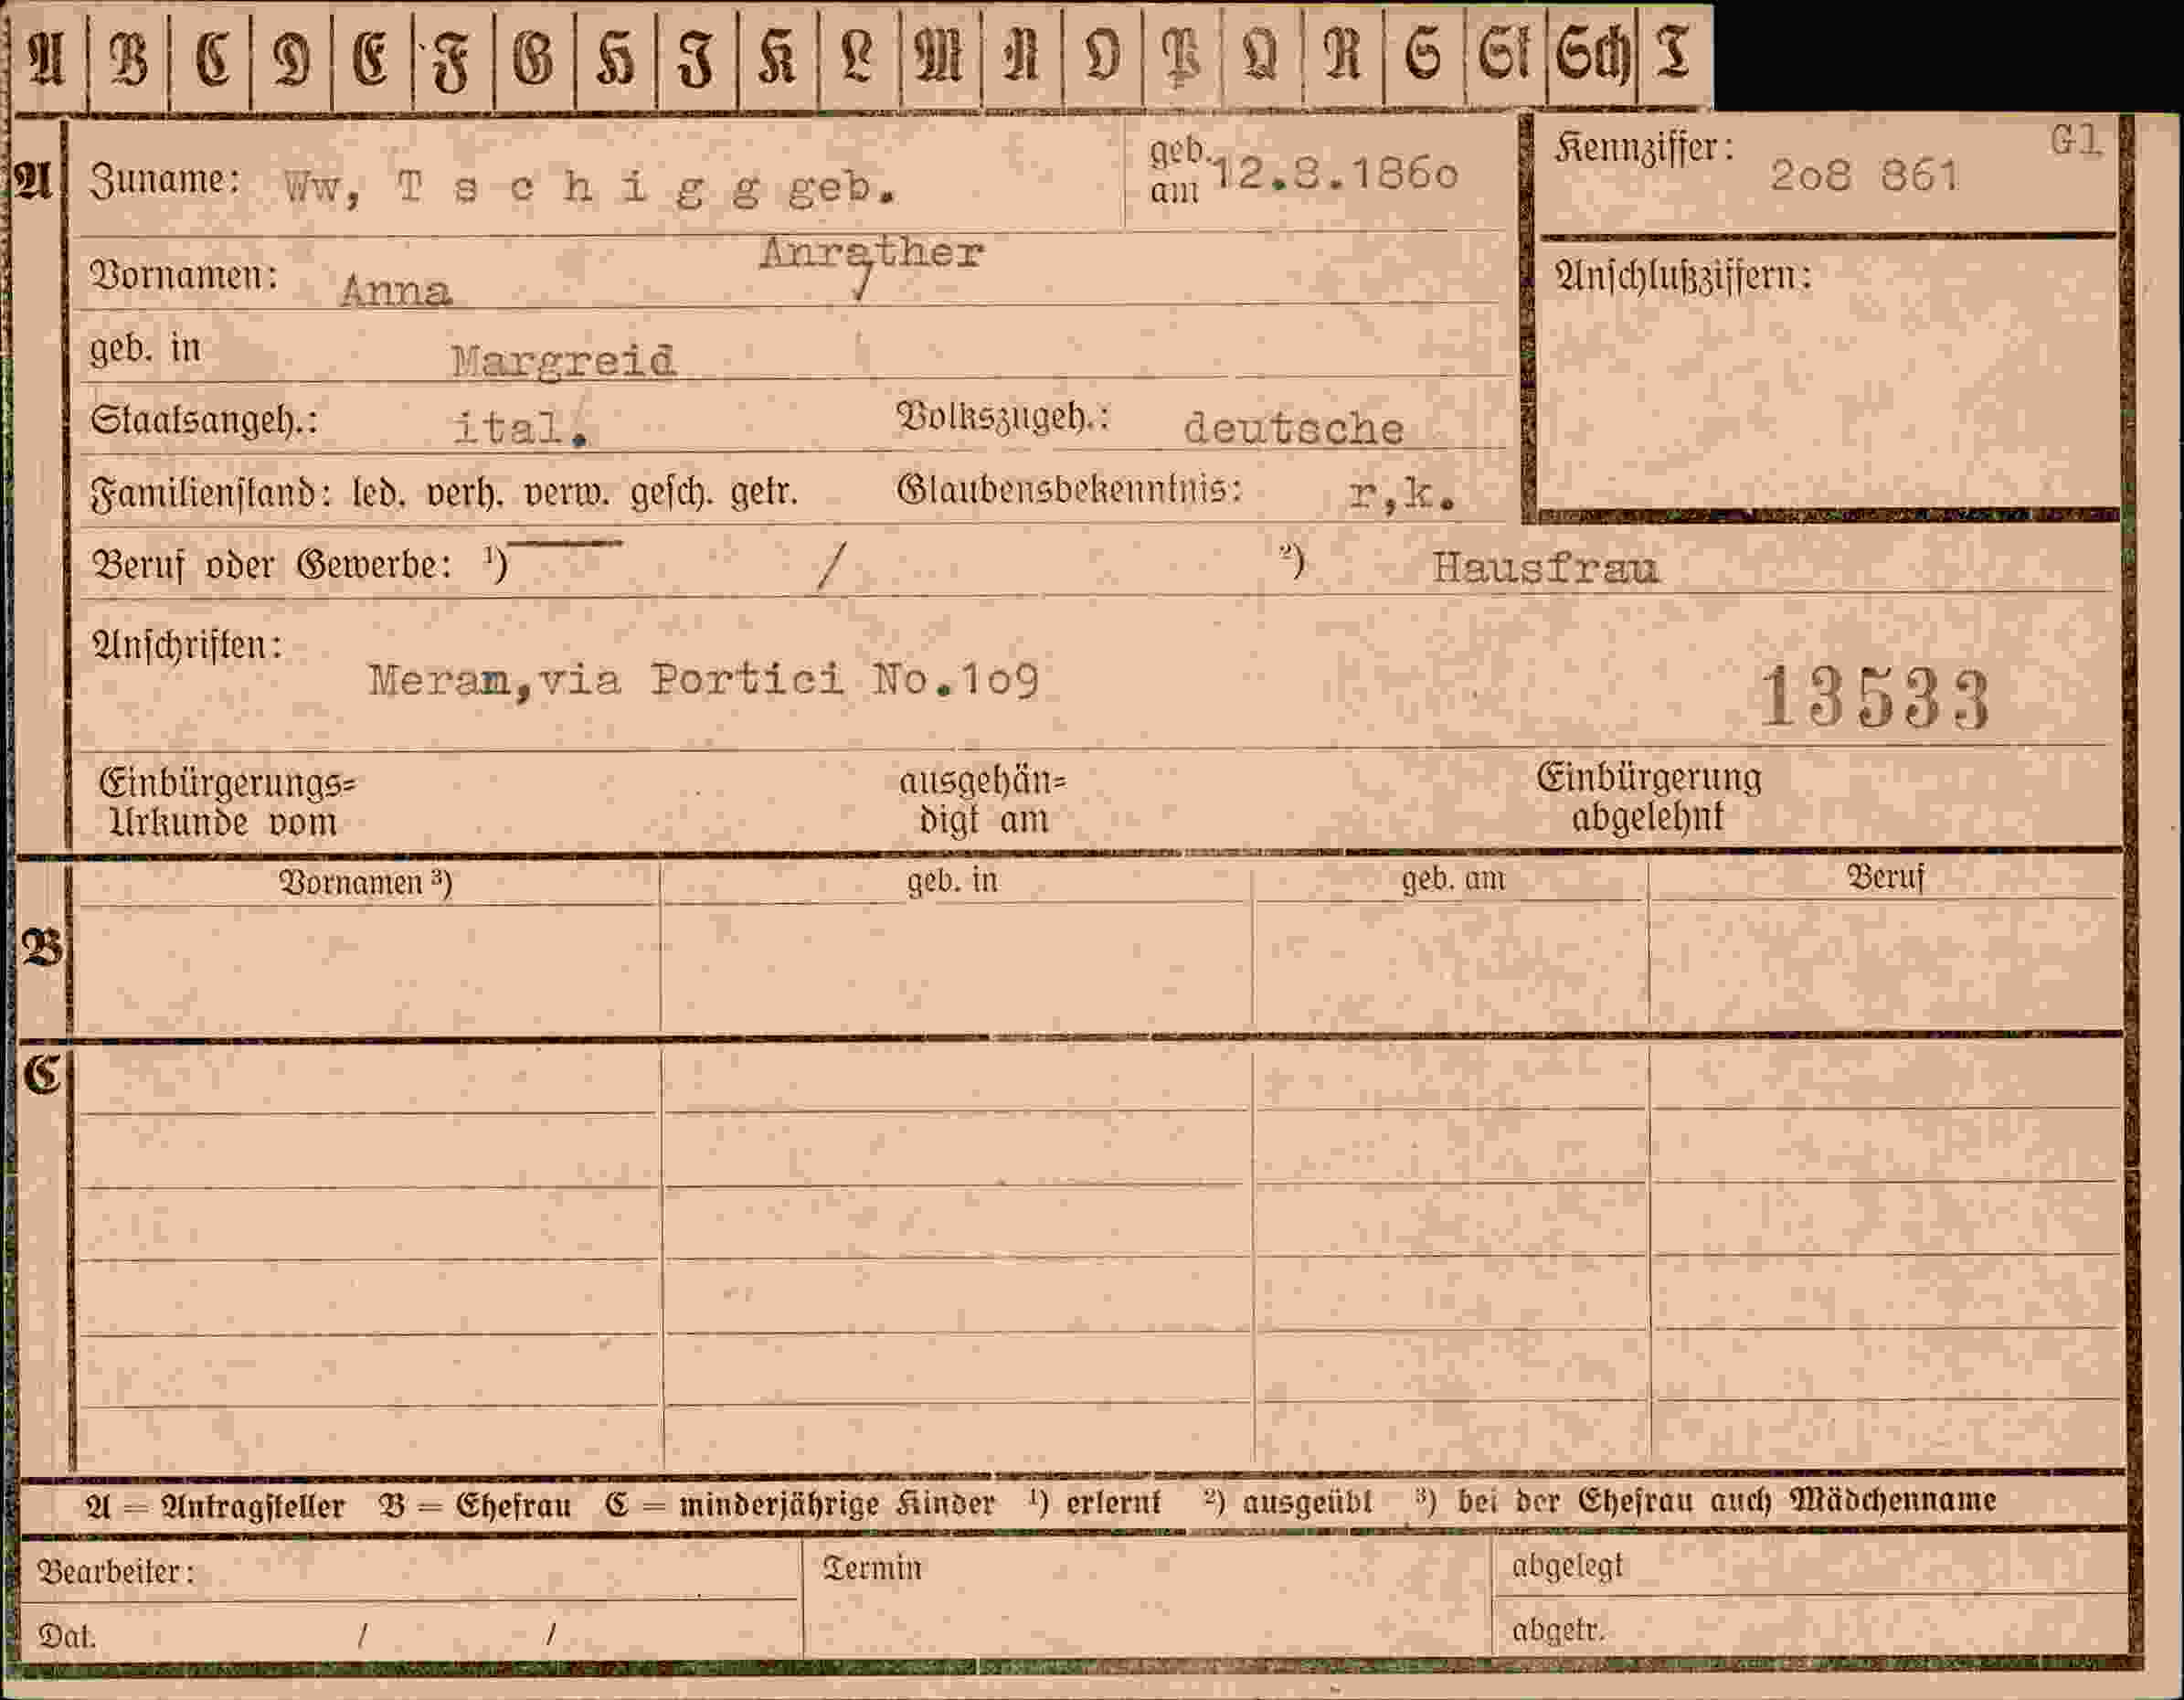 A B C D E F G H I K L M N O P Q R S St Sch T
A Zuname: Ww, T s c h i g g geb. geb. am 12.8.186o Kennziffer: 2o8 861 Gl
Anrather
Vornamen: Anna Anschlußziffern:
geb. in Margreid
Staatsangeh.: ital. Volkszugeh.: deutsche
Familienstand: led. verh. verw. gesch. getr. Glaubensbekenntnis: r,k.
Beruf oder Gewerbe: ¹) / ²) Hausfrau
Anschriften:
Meran,via Portici No.1o9 13533
Einbürgerungs= ausgehän= Einbürgerung
Urkunde vom digt am abgelehnt
Vornamen ³) geb. in geb. am Beruf
B
C
A = Antragsteller B = Ehefrau C = minderjährige Kinder ¹) erlernt ²) ausgeübt ³) bei der Ehefrau auch Mädchenname
Bearbeiter: Termin abgelegt
Dat. / / abgetr.